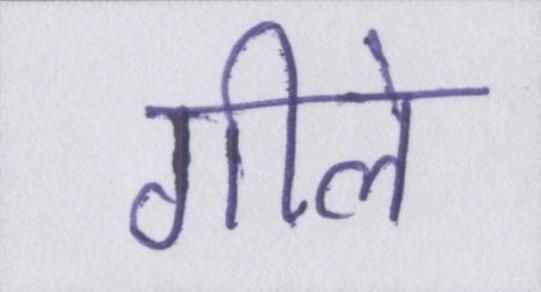 गीले